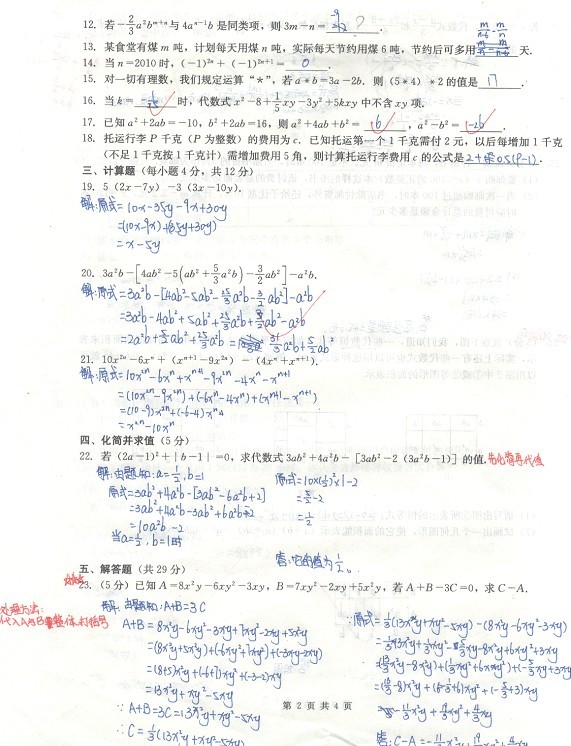 12. 若−2/3 a²b^{m+n}与 4a^{n−1}b 是同类项，则 3m−n=
13. 某食堂有煤 m 吨，计划每天用煤 n 吨，实际每天节约用煤 6 吨，节约后可多用 天.
14. 当 n=2010 时，(−1)^{2n}+(−1)^{2n+1}= 0 .
15. 对一切有理数，我们规定运算“*”，若 a*b=3a−2b. 则 (5*4)*2 的值是 17 .
16. 当 k= 时，代数式 x²−8+1/5 xy−3y²+5kxy 中不含 xy 项.
17. 已知 a²+2ab=−10，b²+2ab=16，则 a²+4ab+b²= 6 ，a²−b²= −26 .
18. 托运行李 P 千克（P 为整数）的费用为 c. 已知托运第一个 1 千克需付 2 元，以后每增加 1 千克
（不足 1 千克按 1 千克计）需增加费用 5 角，则计算托运行李费用 c 的公式是 2+0.5(P−1) .
三、计算题（每小题 4 分，共 12 分）
19. 5（2x−7y）−3（3x−10y）.
解:原式=10x−35y−9x+30y
=(10x−9x)+(−35y+30y)
=x−5y
20. 3a²b−[4ab²−5(ab²+5/3 a²b)−3/2 ab²]−a²b.
解:原式=3a²b−[4ab²−5ab²−25/3 a²b−3/2 ab²]−a²b
=3a²b−4ab²+5ab²+25/3 a²b+3/2 ab²−a²b
=2a²b+5/2 ab²+25/3 a²b = 31/3 a²b+5/2 ab²
21. 10x^{2n}−6xⁿ+（x^{n+1}−9x^{2n}）−（4xⁿ+x^{n+1}）.
解:原式=10x^{2n}−6xⁿ+x^{n+1}−9x^{2n}−4xⁿ−x^{n+1}
=(10x^{2n}−9x^{2n})+(−6xⁿ−4xⁿ)+(x^{n+1}−x^{n+1})
=(10−9)x^{2n}+(−6−4)xⁿ
=x^{2n}−10xⁿ
四、化简并求值（5 分）
22. 若（2a−1)²+|b−1|=0，求代数式 3ab²+4a²b−［3ab²−2（3a²b−1)］的值. 先化简再代值
解:由题知:a=1/2,b=1
原式=3ab²+4a²b−[3ab²−6a²b+2]
=3ab²+4a²b−3ab²+6a²b−2
=10a²b−2
当a=1/2,b=1时
原式=10×(1/2)²×1−2
=5/2−2
=1/2
答:它的值为1/2.
五、解答题（共 29 分）
23.（5 分）已知 A=8x²y−6xy²−3xy，B=7xy²−2xy+5x²y，若 A+B−3C=0，求 C−A.
处理方法:
代入A与B要整体,打括号
解:由题知:A+B=3C
A+B=8x²y−6xy²−3xy+7xy²−2xy+5x²y
=(8x²y+5x²y)+(−6xy²+7xy²)+(−3xy−2xy)
=(8+5)x²y+(−6+7)xy²+(−3−2)xy
=13x²y+xy²−5xy
∵A+B=3C=13x²y+xy²−5xy
∴C=1/3(13x²y+xy²−5xy)
原式=1/3(13x²y+xy²−5xy)−(8x²y−6xy²−3xy)
第 2 页 共 4 页